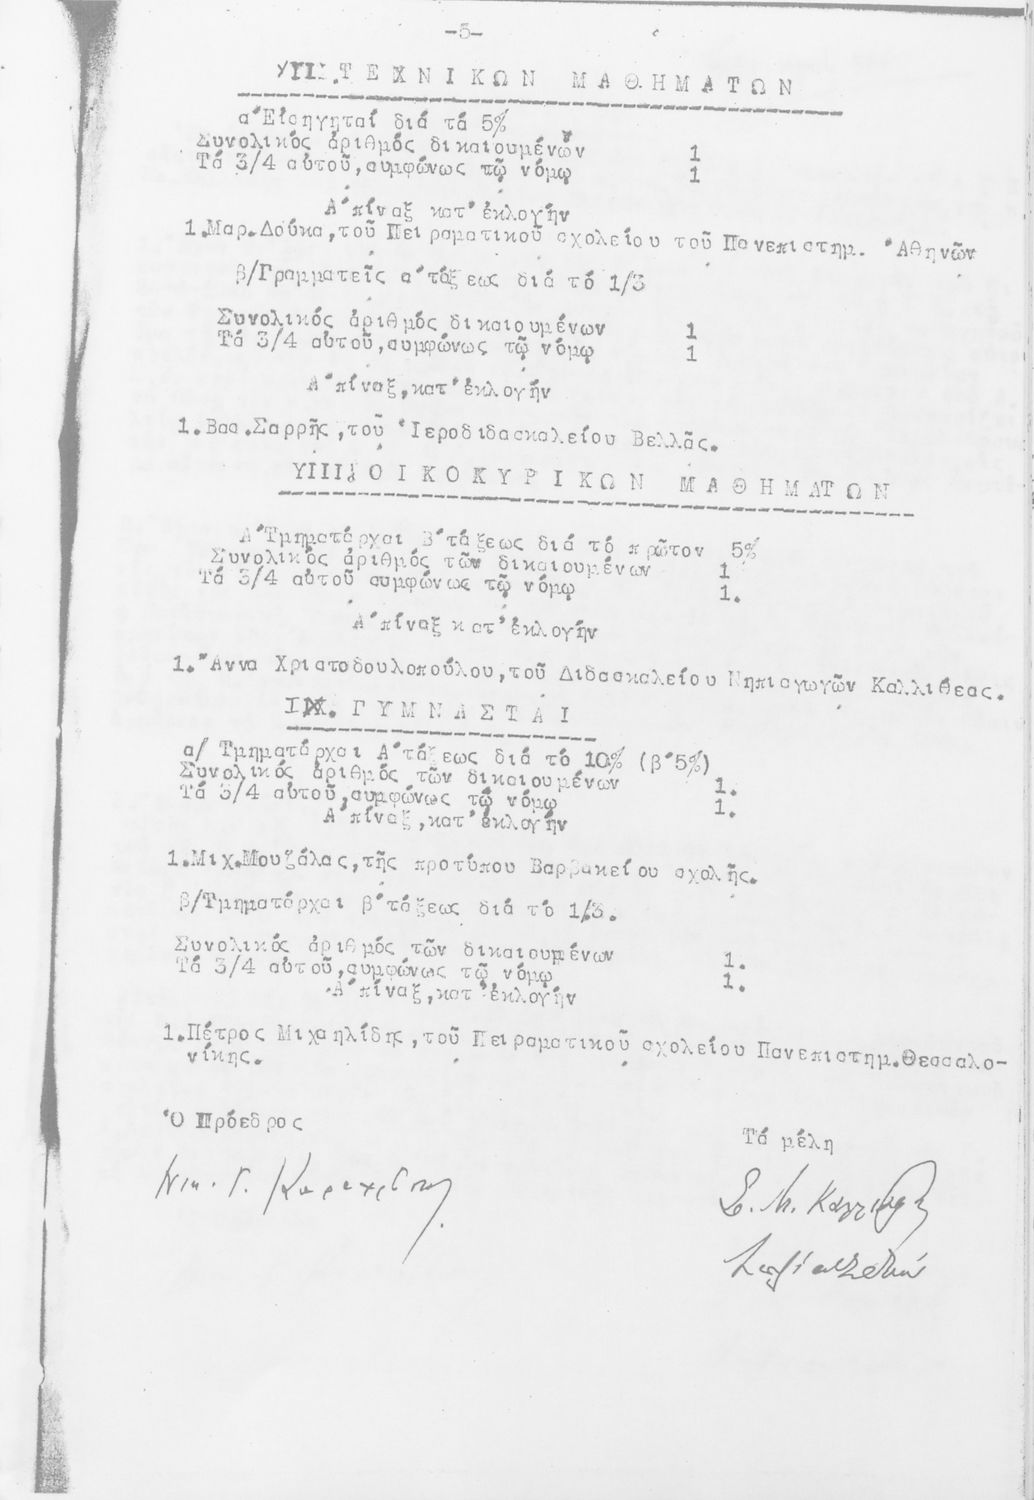 -5-
ΥΙΙ.ΤΕΧΝΙΚΩΝ ΜΑΘΗΜΑΤΩΝ
α΄Εἰσηγηταί διά τά 5%
Συνολικός ἀριθμός δικαιουμένων 1
Τά 3/4 αὐτοῦ,συμφώνως τῷ νόμῳ 1
Α΄πίναξ κατ΄ἐκλογήν
1.Μαρ.Δούκα,τοῦ Πειραματικοῦ σχολείου τοῦ Πανεπιστημ. ᾿Αθηνῶν
β/Γραμματεῖς α΄τάξεως διά τό 1/3
Συνολικός ἀριθμός δικαιουμένων 1
Τά 3/4 αὐτοῦ,συμφώνως τῷ νόμῳ 1
Α΄πίναξ,κατ΄ἐκλογήν
1.Βασ.Σαρρῆς,τοῦ ῾Ιεροδιδασκαλείου Βελλᾶς.
ΥΙΙΙ. ΟΙΚΟΚΥΡΙΚΩΝ ΜΑΘΗΜΑΤΩΝ
Α΄Τμηματάρχαι Β΄τάξεως διά τό πρῶτον 5%
Συνολικός ἀριθμός τῶν δικαιουμένων 1
Τά 3/4 αὐτοῦ συμφώνως τῷ νόμῳ 1.
Α΄πίναξ κατ΄ἐκλογήν
1.῎Αννα Χριστοδουλοπούλου,τοῦ Διδασκαλείου Νηπιαγωγῶν Καλλιθέας.
ΙΧ. ΓΥΜΝΑΣΤΑΙ
α/ Τμηματάρχαι Α΄τάξεως διά τό 10% (β΄5%)
Συνολικός ἀριθμός τῶν δικαιουμένων 1.
Τά 3/4 αὐτοῦ,συμφώνως τῷ νόμῳ 1.
Α΄πίναξ,κατ΄ἐκλογήν
1.Μιχ.Μουζάλας,τῆς προτύπου Βαρβακείου σχολῆς.
β/Τμηματάρχαι β΄τάξεως διά τό 1/3.
Συνολικός ἀριθμός τῶν δικαιουμένων 1.
Τά 3/4 αὐτοῦ,συμφώνως τῷ νόμῳ 1.
Α΄πίναξ,κατ΄ἐκλογήν
1.Πέτρος Μιχαηλίδης,τοῦ Πειραματικοῦ σχολείου Πανεπιστημ.Θεσσαλο-
νίκης.
῾Ο Πρόεδρος
Τά μέλη
Νικ. Γ.